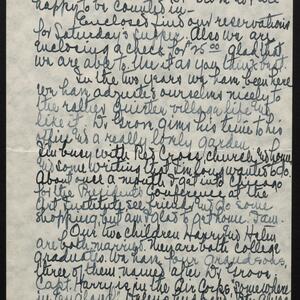 happy to be counted in.
Enclosed find our reservations
for Saturday's supper. Also we are
enclosing a check for $25.00 glad that
we are able to
In the two years we have been here
we have adjusted ourselves nicely to
the rather quieter village life + we
like it. Dr. Groos gives his time to his
office + a really lovely garden.
I'm busy with Red Cross, church,
some writing that I'm
About once a month I get into Chicago
for the Presidents Conference at
Art Institute, see friends, do some
shopping, but am glad to get home. I am.
Our two children Harry + Helen
are both married. They are both college
graduates. We have four grandsons,
three of them named after Dr. Groos.
Capt. Harry is in the Air Corps somewhere
in England.